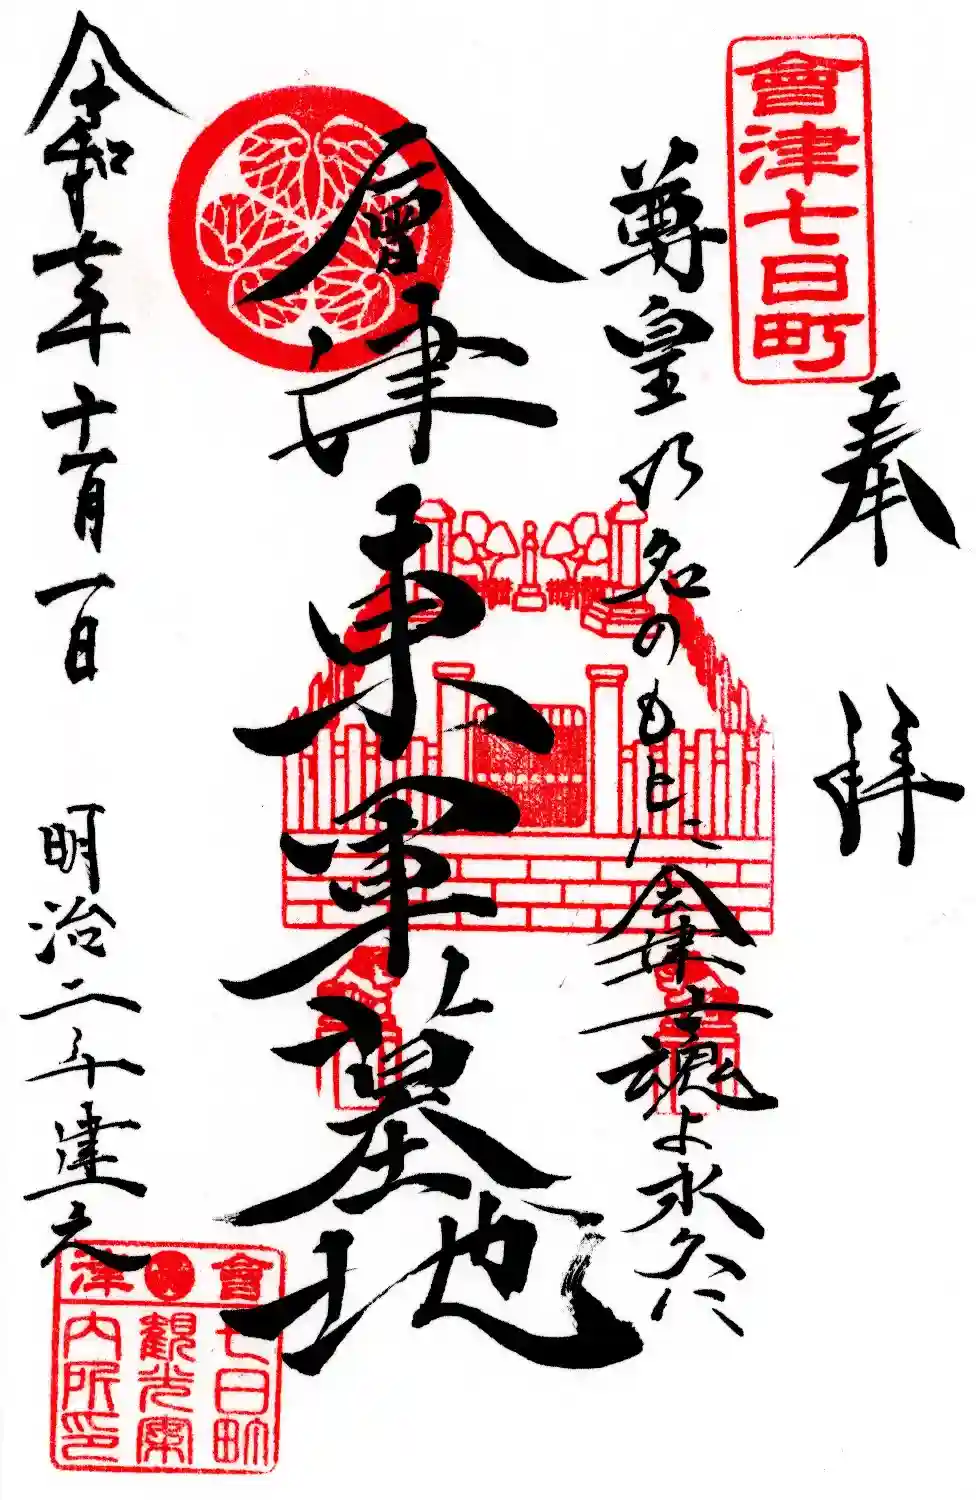 會津七日町
奉拝
尊皇の名のもとに会津士魂よ永久に
會津
東軍墓地
令和七年十一月一日
明治二年建之
會津
七日町
観光案
内所印